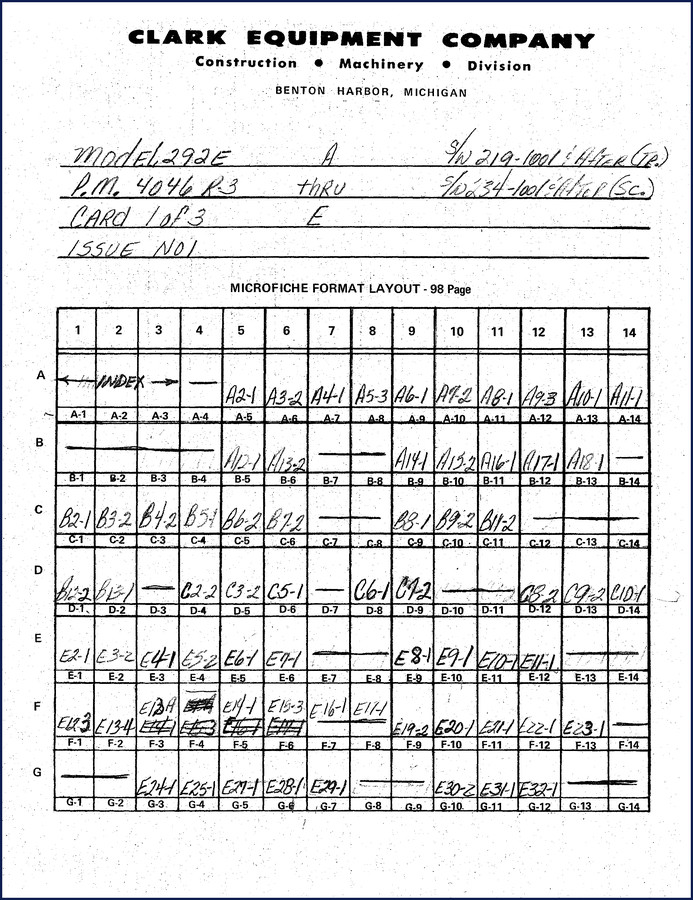 CLARK EQUIPMENT COMPANY
Construction • Machinery • Division
BENTON HARBOR, MICHIGAN
MODEL 292E A S/N 219-1001 & AFTER (TR.)
P.M. 4046 R-3 thRU S/N 234-1001 & AFTER (SC.)
CARD 1 of 3 E
ISSUE NO1
MICROFICHE FORMAT LAYOUT - 98 Page
1 2 3 4 5 6 7 8 9 10 11 12 13 14
A
INDEX A2-1 A3-2 A4-1 A5-3 A6-1 A7-2 A8-1 A9-3 A10-1 A11-1
A-1 A-2 A-3 A-4 A-5 A-6 A-7 A-8 A-9 A-10 A-11 A-12 A-13 A-14
B
A12-1 A13-2 A14-1 A15-2 A16-1 A17-1 A18-1
B-1 B-2 B-3 B-4 B-5 B-6 B-7 B-8 B-9 B-10 B-11 B-12 B-13 B-14
C
B2-1 B3-2 B4-2 B5-1 B6-2 B7-2 B8-1 B9-2 B11-2
C-1 C-2 C-3 C-4 C-5 C-6 C-7 C-8 C-9 C-10 C-11 C-12 C-13 C-14
D
B12-2 B13-1 C2-2 C3-2 C5-1 C6-1 C7-2 C8-2 C9-2 C10-1
D-1 D-2 D-3 D-4 D-5 D-6 D-7 D-8 D-9 D-10 D-11 D-12 D-13 D-14
E
E2-1 E3-2 E4-1 E5-2 E6-1 E7-1 E8-1 E9-1 E10-1 E11-1
E-1 E-2 E-3 E-4 E-5 E-6 E-7 E-8 E-9 E-10 E-11 E-12 E-13 E-14
F
E13A E14-1 E15-3 E16-1 E17-1
E12-3 E13-4 E19-2 E20-1 E21-1 E22-1 E23-1
F-1 F-2 F-3 F-4 F-5 F-6 F-7 F-8 F-9 F-10 F-11 F-12 F-13 F-14
G
E24-1 E25-1 E27-1 E28-1 E29-1 E30-2 E31-1 E32-1
G-1 G-2 G-3 G-4 G-5 G-6 G-7 G-8 G-9 G-10 G-11 G-12 G-13 G-14